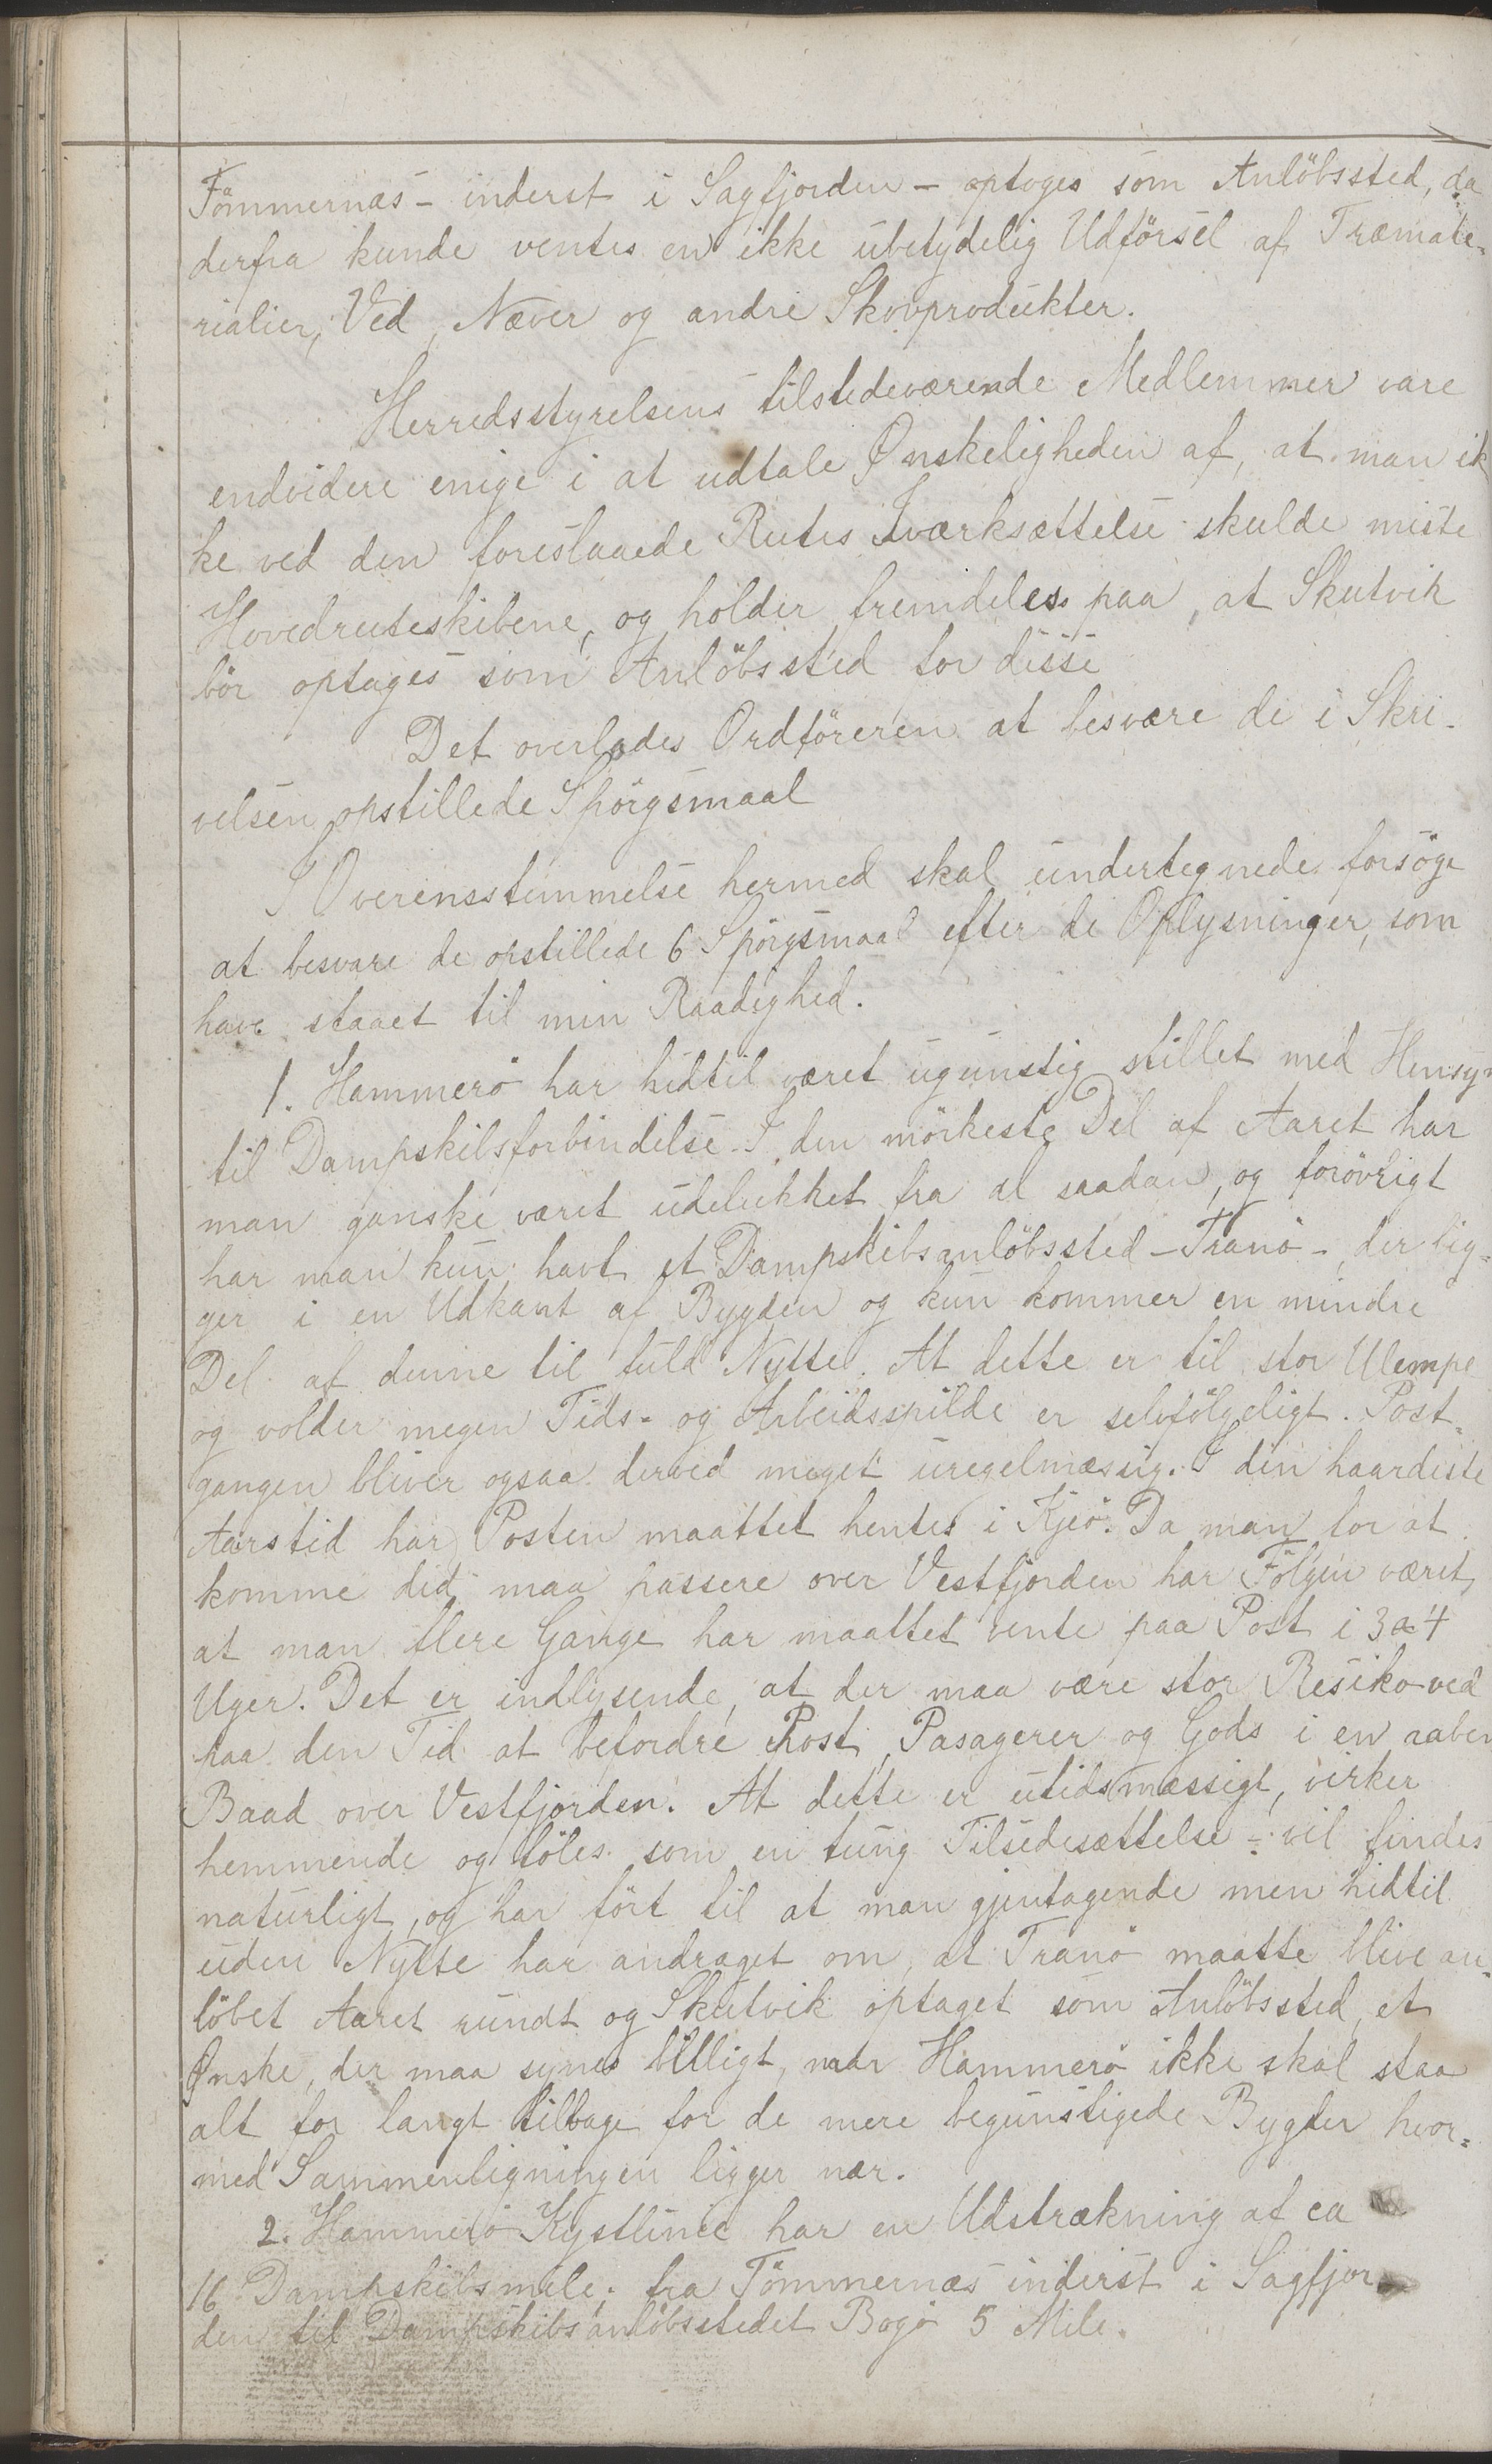 Tömmernæs - inderst i Sagfjorden - optoges som Anlöbssted, da
derfra kunde ventes en ikke ubetydelig Udförsel af Træmate-
rialier, Ved, Næver og andre Skovprodukter.
Herredsstyrelsens tilstedeværende Medlemmer vare
endvidere enige i at udtale Ønskeligheden af, at man ik
ke ved den foreslaaede Rutes Iværksættelse skulde miste
Hovedruteskibene, og holder fremdeles paa, at Skutvik
bör optages som Anlöbssted for disse
Det overlades Ordföreren at besvære de i Skri-
velsen opstillede Spörgsmaal
I Overensstemmelse hermed skal undertegnede forsöge
at besvare de opstillede 6 Spörgsmaal efter de Oplysninger, som
have staaet til min Raadighed.
1. Hammerö har hidtil været ugunstig stillet med Hensyn
til Dampskibsforbindelse. I den mörkeste Del af Aaret har
man ganske været udelukket fra al saadan, og forövrigt
har man kun havt et Dampskibsanlöbssted - Tranö -, der lig-
ger i en Udkant af Bygden og kun kommer en mindre
Del af denne til fuld Nytte. At dette er til stor Ulempe
og volder megen Tids- og Arbeidsspilde er selvfölgeligt. Post-
gangen bliver ogsaa derved meget uregelmæssig. I den haardeste
Aarstid har Posten maattet hentes i Kjeö. Da man for at
komme did maa passere over Vestfjorden har Fölgen været,
at man flere Gange har maattet vente paa Post i 3 a 4
Uger. Det er indlysende, at der maa være stor Resiko ved
paa den Tid at befordre Post, Pasagerer og Gods i en aaben
Baad over Vestfjorden. At dette er utidsmæssigt, virker
hemmende og föles som en tung Tilsidesættelse - vil findes
naturligt, og har fört til at man gjentagende men hidtil
uden Nytte har andraget om, at Tranö maatte blive an-
löbet Aaret rundt og Skutvik optaget som Anlöbssted, et
Ønske, der maa synes billigt, naar Hammerö ikke skal staa
alt for langt tilbage for de mere begunstigede Bygder hvor-
med Sammenligningen ligger nær.
2. Hammerö Kystlinie har en Udstrækning af ca
16 Dampskibsmile; fra Tömmernæs inderst i Sagfjor-
den til Dampskibsanlöbsstedet Bogö 5 Mile.